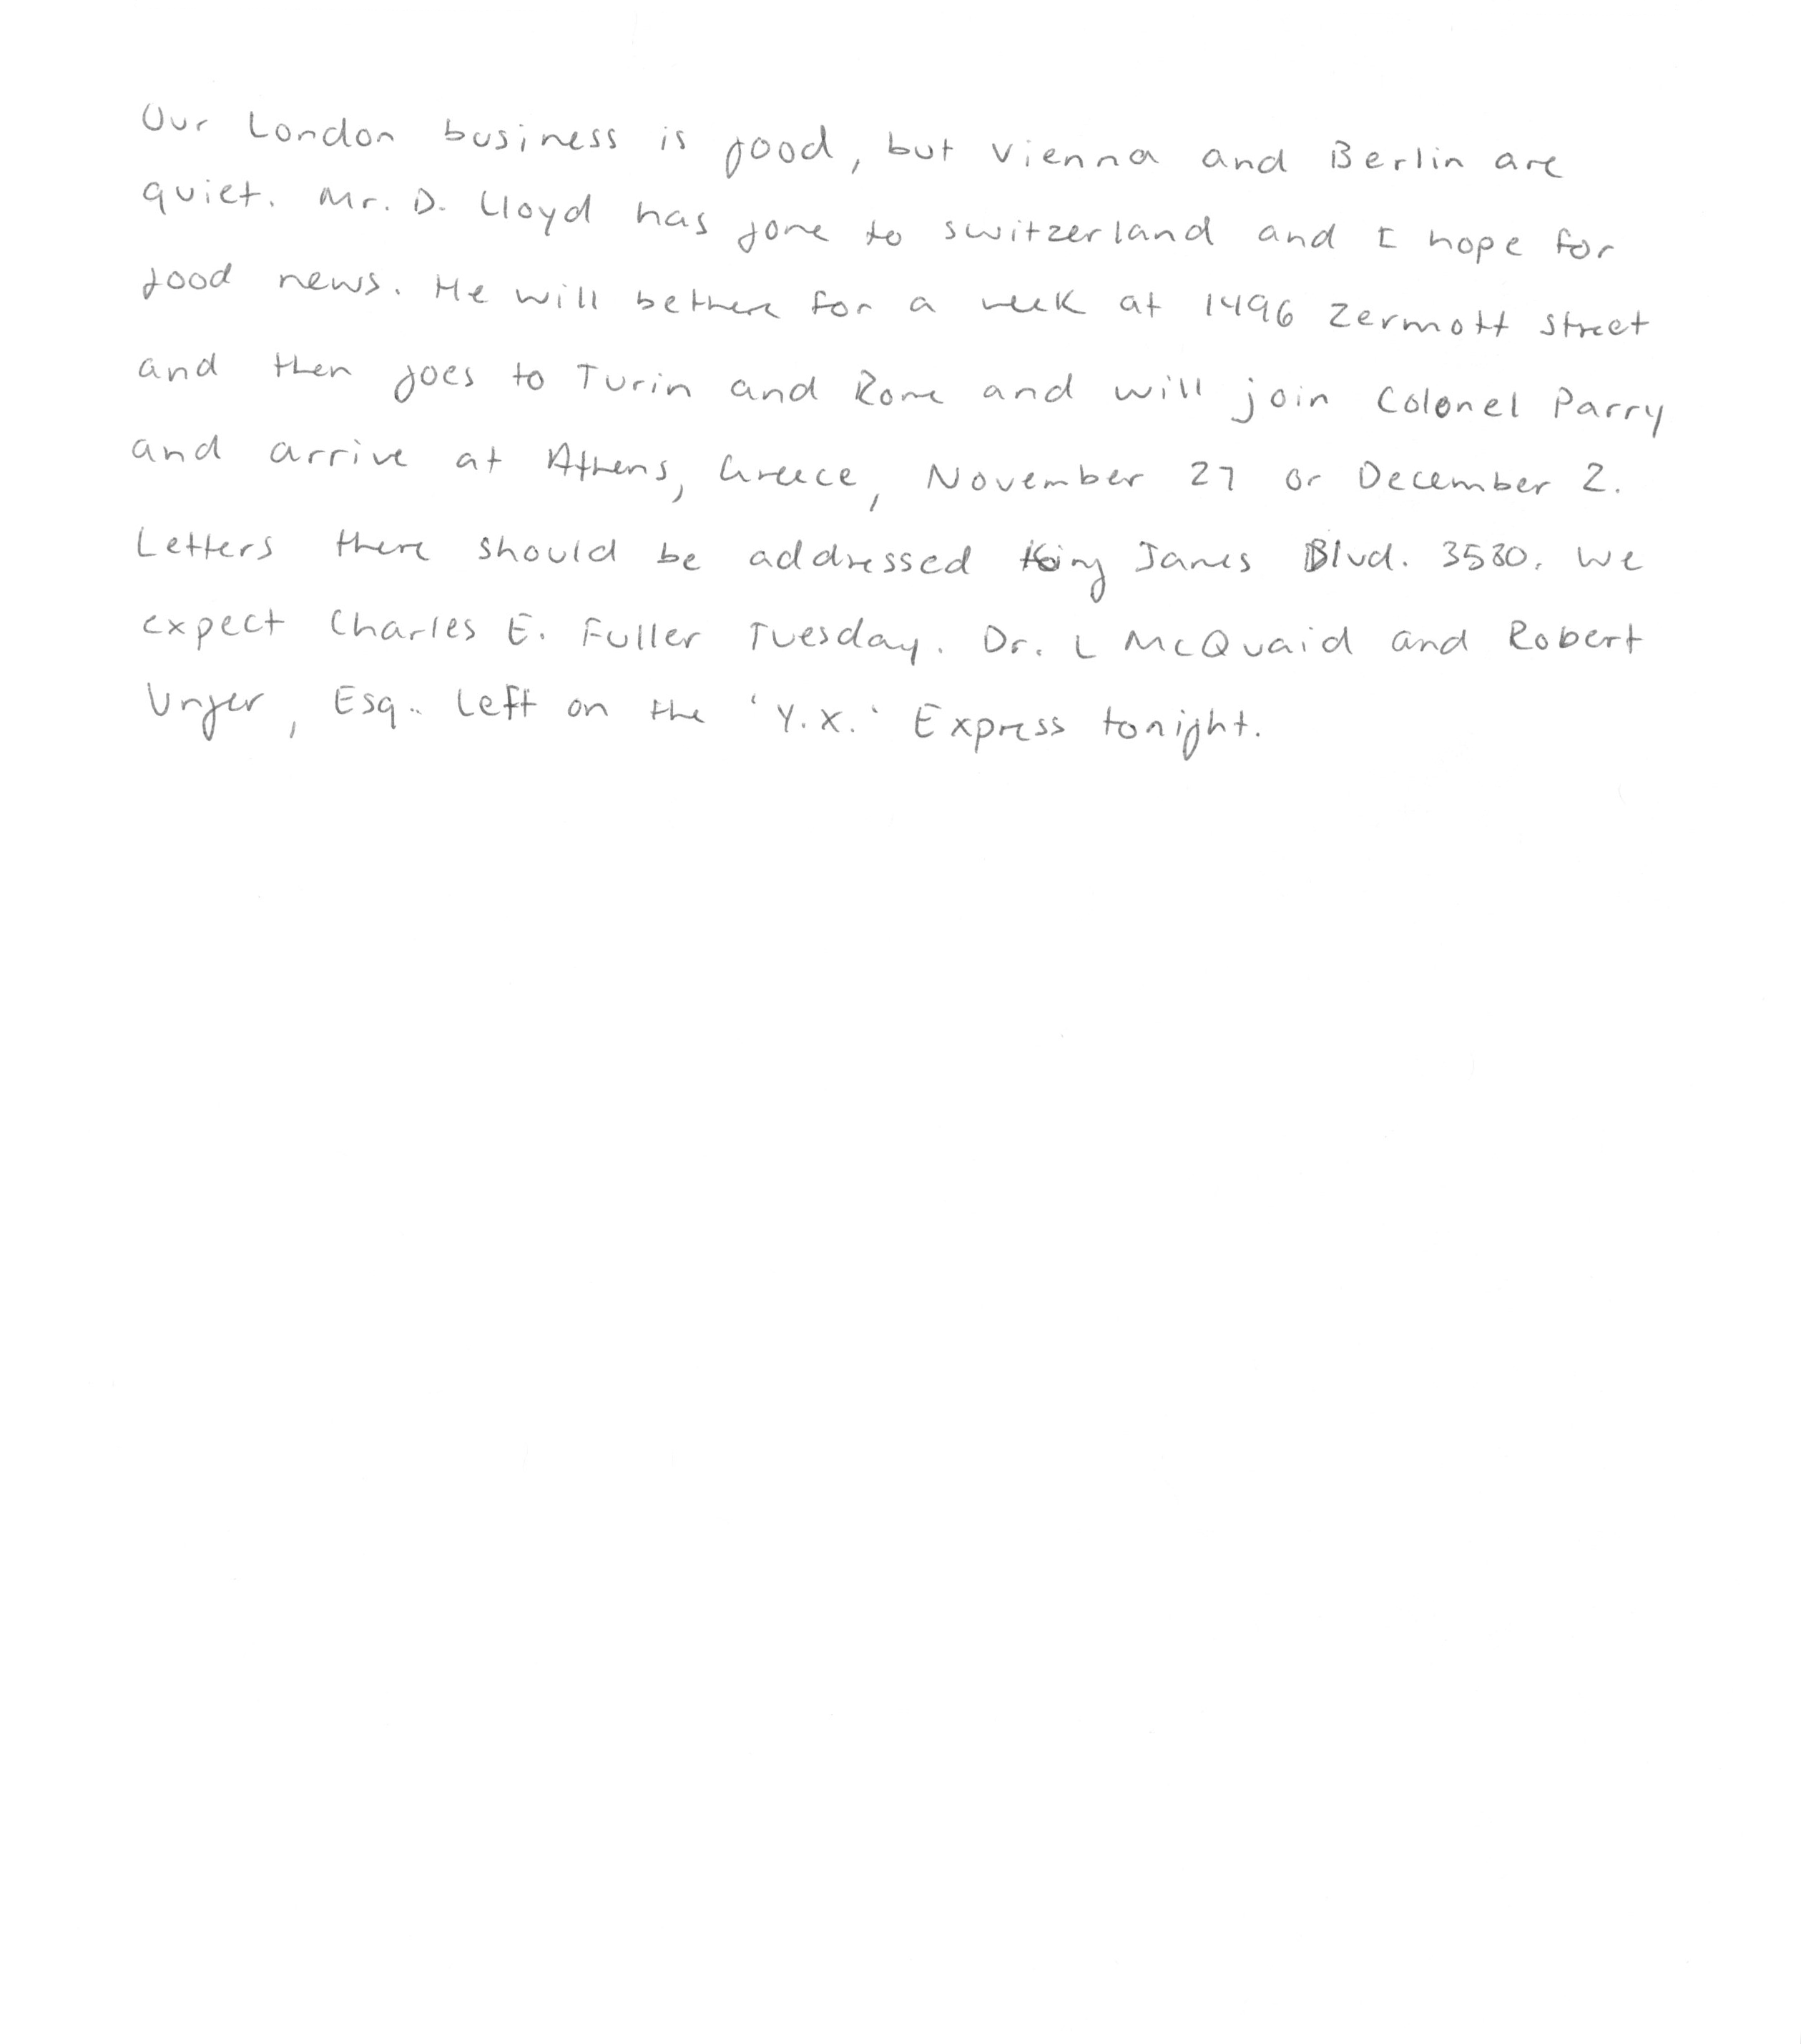 Our London business is good, but Vienna and Berlin are
quiet. Mr. D. Lloyd has gone to Switzerland and I hope for
good news. He will be there for a week at 1496 Zermott Street
and then goes to Turin and Rome and will join Colonel Parry
and arrive at Athens, Greece, November 27 or December 2.
Letters there should be addressed King James Blvd. 3580. We
expect Charles E. Fuller Tuesday. Dr. L McQuaid and Robert
Unger, Esq.. left on the 'Y.X.' Express tonight.